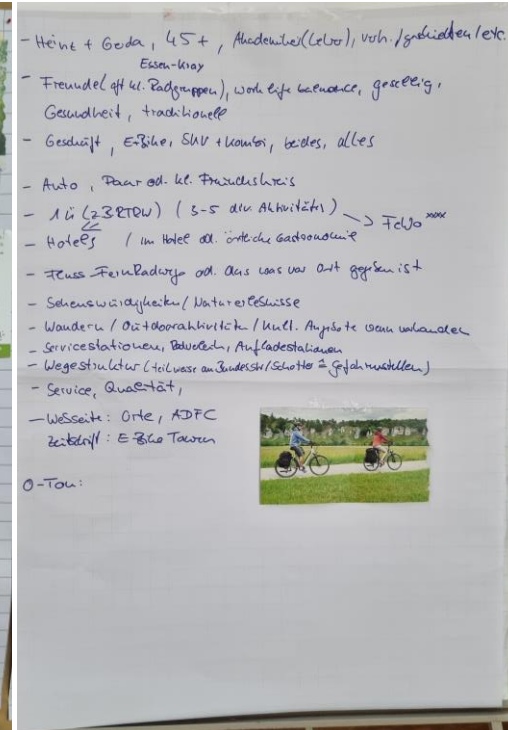 - Heinz + Gerda, 45+, Akademiker (Lehrer), verh./geschieden/etc.
Essen-Kray
- Freunde (oft kl. Radgruppen), work life balance, gesellig,
Gesundheit, traditionell
- Geschäft, E-Bike, SUV + Kombi, beides, alles
- Auto, Paar od. kl. Freundeskreis
- 1Ü (3-5 div. Aktivitäten) → FeWo ****
- Hotels / im Hotel od. örtliche Gastronomie
- Fluss-Fernradwege od. das was vor Ort gegeben ist
- Sehenswürdigkeiten / Naturerlebnisse
- Wandern / Outdooraktivitäten / kult. Angebote wenn vorhanden
- Servicestationen, Aufladestationen
- Wegestruktur (teilweise an Bundesstr/Schotter = Gefahrenstellen)
- Service, Qualität,
- Webseite: Orte, ADFC
Zeitschrift: E-Bike Touren
O-Ton: